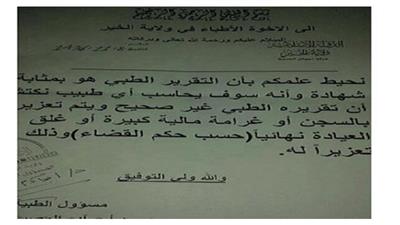 الى الاخوة الأطباء في ولاية الخير
السلام عليكم ورحمة الله تعالى وبركاته
نحيط علمكم بان التقرير الطبي هو بمثابة
شهادة وأنه سوف يحاسب أي طبيب نكتشف
أن تقريره الطبي غير صحيح ويتم تعزيره
بالسجن أو غرامة مالية كبيرة أو غلق
العيادة نهائياً(حسب حكم القضاء)وذلك
تعزيراً له.
والله ولي التوفيق
مسؤول الطب